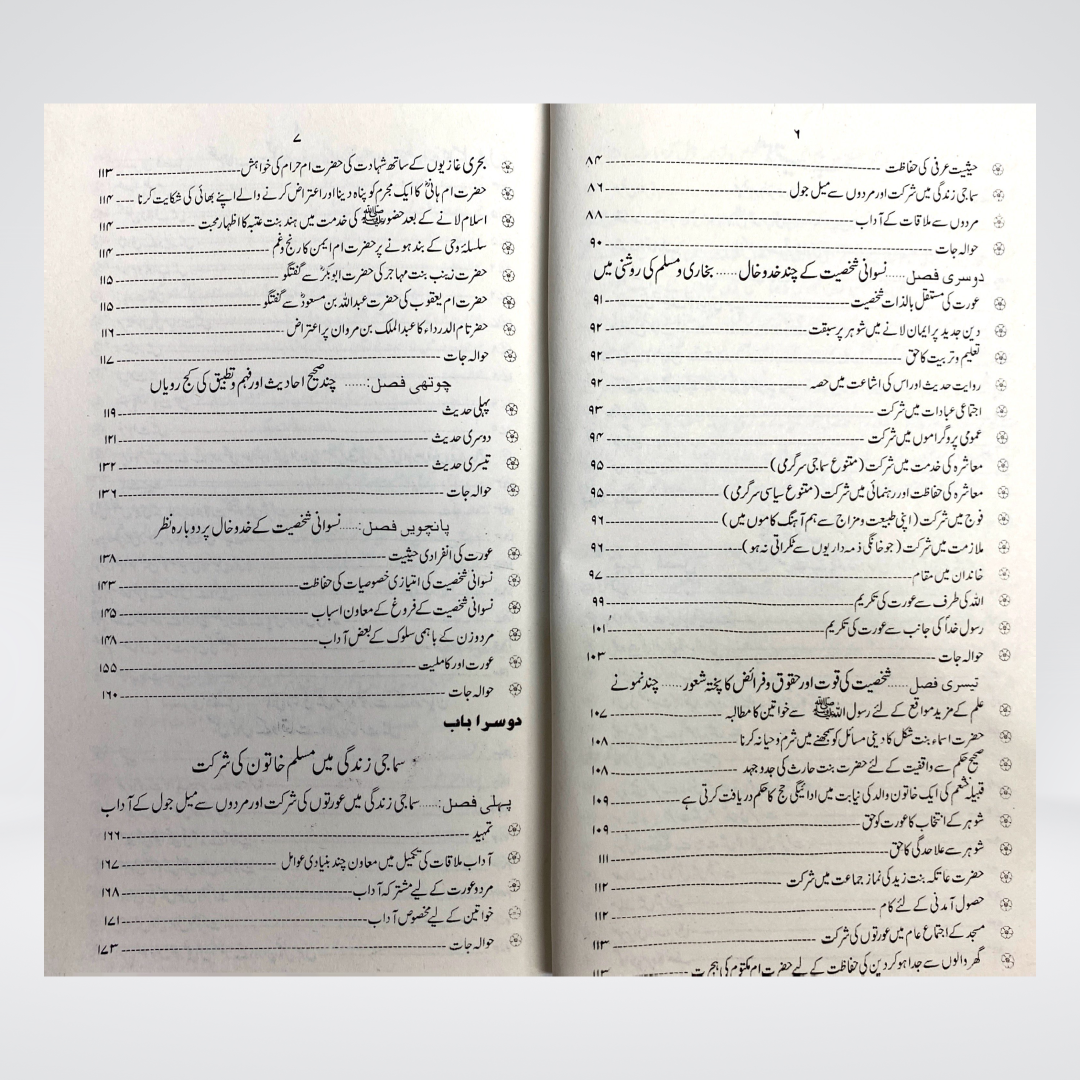 ۶
حیثیت عرفی کی حفاظت ---------- ۸۴
سماجی زندگی میں شرکت اور مردوں سے میل جول ---------- ۸۶
مردوں سے ملاقات کے آداب ---------- ۸۸
حوالہ جات ---------- ۹۰
دوسری فصل...... نسوانی شخصیت کے چند خدوخال ...... بخاری و مسلم کی روشنی میں
عورت کی مستقل بالذات شخصیت ---------- ۹۱
دین جدید پر ایمان لانے میں شوہر پر سبقت ---------- ۹۲
تعلیم و تربیت کا حق ---------- ۹۲
روایت حدیث اور اس کی اشاعت میں حصہ ---------- ۹۲
اجتماعی عبادات میں شرکت ---------- ۹۳
عمومی پروگراموں میں شرکت ---------- ۹۴
معاشرہ کی خدمت میں شرکت (متنوع سماجی سرگرمی) ---------- ۹۵
معاشرہ کی حفاظت اور رہنمائی میں شرکت (متنوع سیاسی سرگرمی) ---------- ۹۵
فوج میں شرکت (اپنی طبیعت و مزاج سے ہم آہنگ کاموں میں) ---------- ۹۶
ملازمت میں شرکت (جو خانگی ذمہ داریوں سے ٹکراتی نہ ہو) ---------- ۹۶
خاندان میں مقام ---------- ۹۷
اللہ کی طرف سے عورت کی تکریم ---------- ۹۹
رسول خدا کی جانب سے عورت کی تکریم ---------- ۱۰۱
حوالہ جات ---------- ۱۰۳
تیسری فصل...... شخصیت کی قوت اور حقوق و فرائض کا پختہ شعور ...... چند نمونے
علم کے مزید مواقع کے لئے رسول اللہ ﷺ سے خواتین کا مطالبہ ---------- ۱۰۷
حضرت اسماء بنت شکل کا دینی مسائل کو سمجھنے میں شرم و حیا نہ کرنا ---------- ۱۰۸
صحیح حکم سے واقفیت کے لئے حضرت بنت حارث کی جدوجہد ---------- ۱۰۸
قبیلہ خثعم کی ایک خاتون والد کی نیابت میں ادائیگی حج کا حکم دریافت کرتی ہے ---------- ۱۰۹
شوہر کے انتخاب کا عورت کو حق ---------- ۱۰۹
شوہر سے علاحدگی کا حق ---------- ۱۱۱
حضرت عاتکہ بنت زید کی نماز جماعت میں شرکت ---------- ۱۱۲
حصول آمدنی کے لئے کام ---------- ۱۱۲
مسجد کے اجتماع عام میں عورتوں کی شرکت ---------- ۱۱۳
گھر والوں سے جدا ہو کر دین کی حفاظت کے لیے حضرت ام مکتوم کی ہجرت ---------- ۱۱۳
۷
بحری غازیوں کے ساتھ شہادت کی حضرت ام حرام کی خواہش ---------- ۱۱۳
حضرت ام ہانیؓ کا ایک مجرم کو پناہ دینا اور اعتراض کرنے والے اپنے بھائی کی شکایت کرنا ---- ۱۱۴
اسلام لانے کے بعد حضور ﷺ کی خدمت میں ہند بنت عتبہ کا اظہار محبت ---------- ۱۱۴
سلسلۂ وحی کے بند ہونے پر حضرت ام ایمن کا رنج و غم ---------- ۱۱۴
حضرت زینب بنت مہاجر کی حضرت ابوبکرؓ سے گفتگو ---------- ۱۱۵
حضرت ام یعقوب کی حضرت عبداللہ بن مسعودؓ سے گفتگو ---------- ۱۱۵
حضرت ام الدرداء کا عبدالملک بن مروان پر اعتراض ---------- ۱۱۶
حوالہ جات ---------- ۱۱۷
چوتھی فصل:...... چند صحیح احادیث اور فہم و تطبیق کی کج رویاں
پہلی حدیث ---------- ۱۱۹
دوسری حدیث ---------- ۱۲۱
تیسری حدیث ---------- ۱۳۲
حوالہ جات ---------- ۱۳۶
پانچویں فصل:...... نسوانی شخصیت کے خدوخال پر دوبارہ نظر
عورت کی انفرادی حیثیت ---------- ۱۳۸
نسوانی شخصیت کی امتیازی خصوصیات کی حفاظت ---------- ۱۴۳
نسوانی شخصیت کے فروغ کے معاون اسباب ---------- ۱۴۵
مرد و زن کے باہمی سلوک کے بعض آداب ---------- ۱۴۸
عورت اور کاملیت ---------- ۱۵۵
حوالہ جات ---------- ۱۶۰
دوسرا باب
سماجی زندگی میں مسلم خاتون کی شرکت
پہلی فصل:...... سماجی زندگی میں عورتوں کی شرکت اور مردوں سے میل جول کے آداب
تمہید ---------- ۱۶۶
آداب ملاقات کی تکمیل میں معاون چند بنیادی عوامل ---------- ۱۶۷
مرد و عورت کے لیے مشترکہ آداب ---------- ۱۶۸
خواتین کے لیے مخصوص آداب ---------- ۱۷۱
حوالہ جات ---------- ۱۷۳